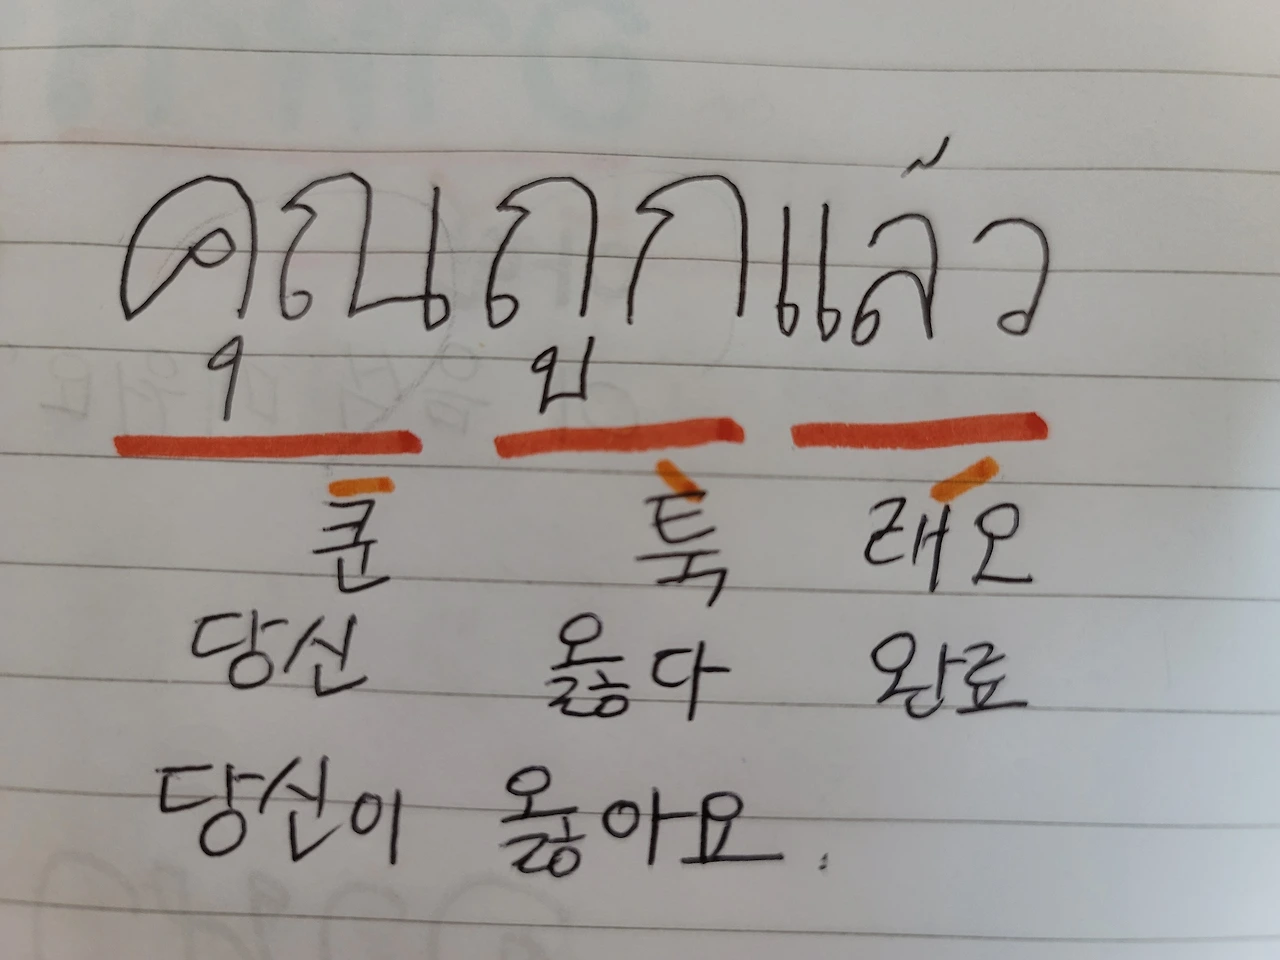 คุณถูกแล้ว
쿤 툭 래오
당신 옳다 완료
당신이 옳아요.